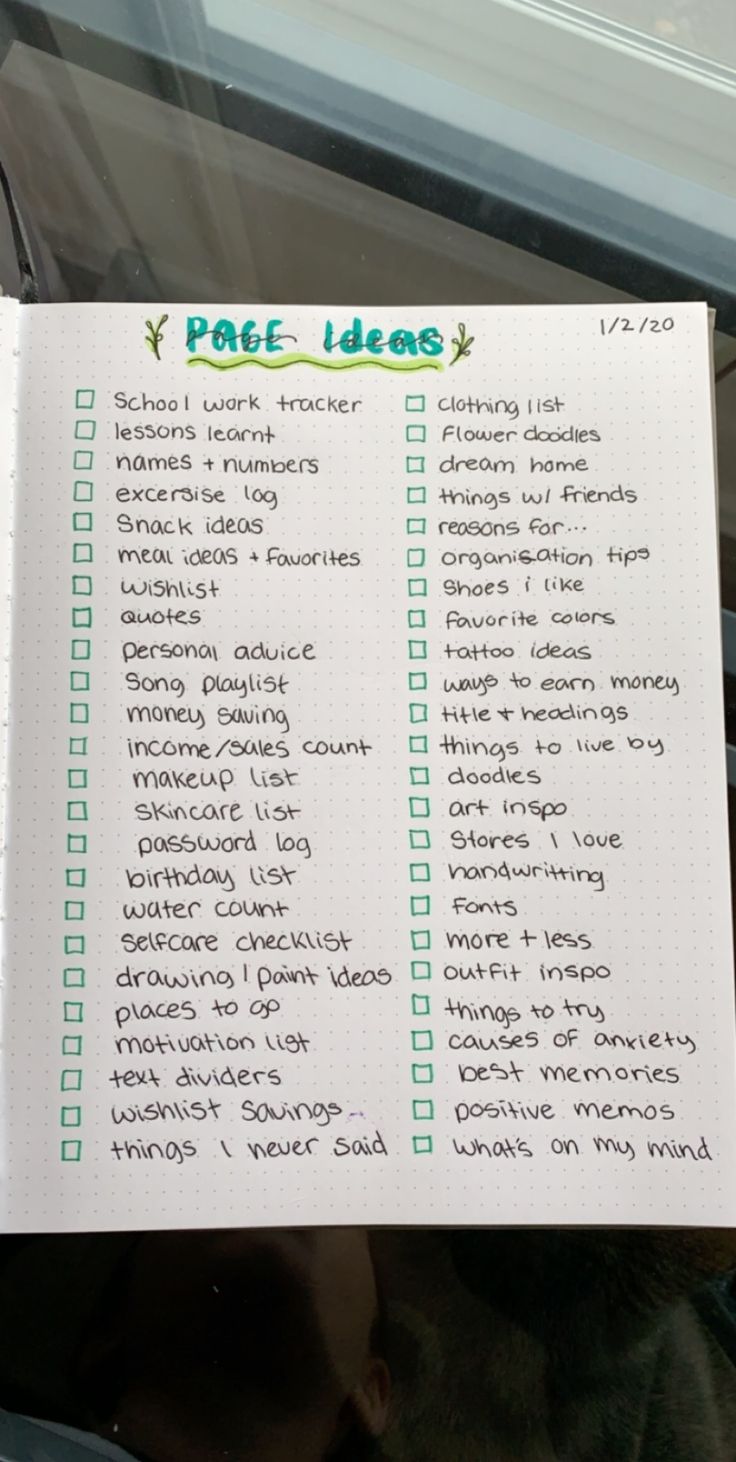 PAGE Ideas
1/2/20
School work tracker
lessons learnt
names + numbers
excersise log
Snack ideas
meal ideas + favorites
wishlist
quotes
personal advice
Song playlist
money saving
income/sales count
makeup list
skincare list
password log
birthday list
water count
selfcare checklist
drawing / paint ideas
places to go
motivation list
text dividers
wishlist savings
things I never said
clothing list
Flower doodles
dream home
things w/ friends
reasons for...
organisation tips
Shoes i like
favorite colors
tattoo ideas
ways to earn money
title + headings
things to live by
doodles
art inspo
Stores I love
handwritting
Fonts
more + less
outfit inspo
things to try
causes of anxiety
best memories
positive memos
what's on my mind